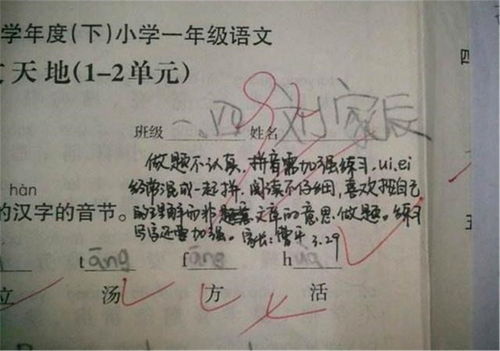 学年度(下)小学一年级语文
天地(1-2单元)
班级 一.四 姓名 刘家辰
做题不认真,拼音需加强练习,ui,ei
经常混成一起拼,阅读不仔细,喜欢把自己
的理解而非文章的意思做题。练习
书写还需加强。家长: 3.29
hàn
的汉字的音节。
tāng fāng h
立 汤 方 活
四
五